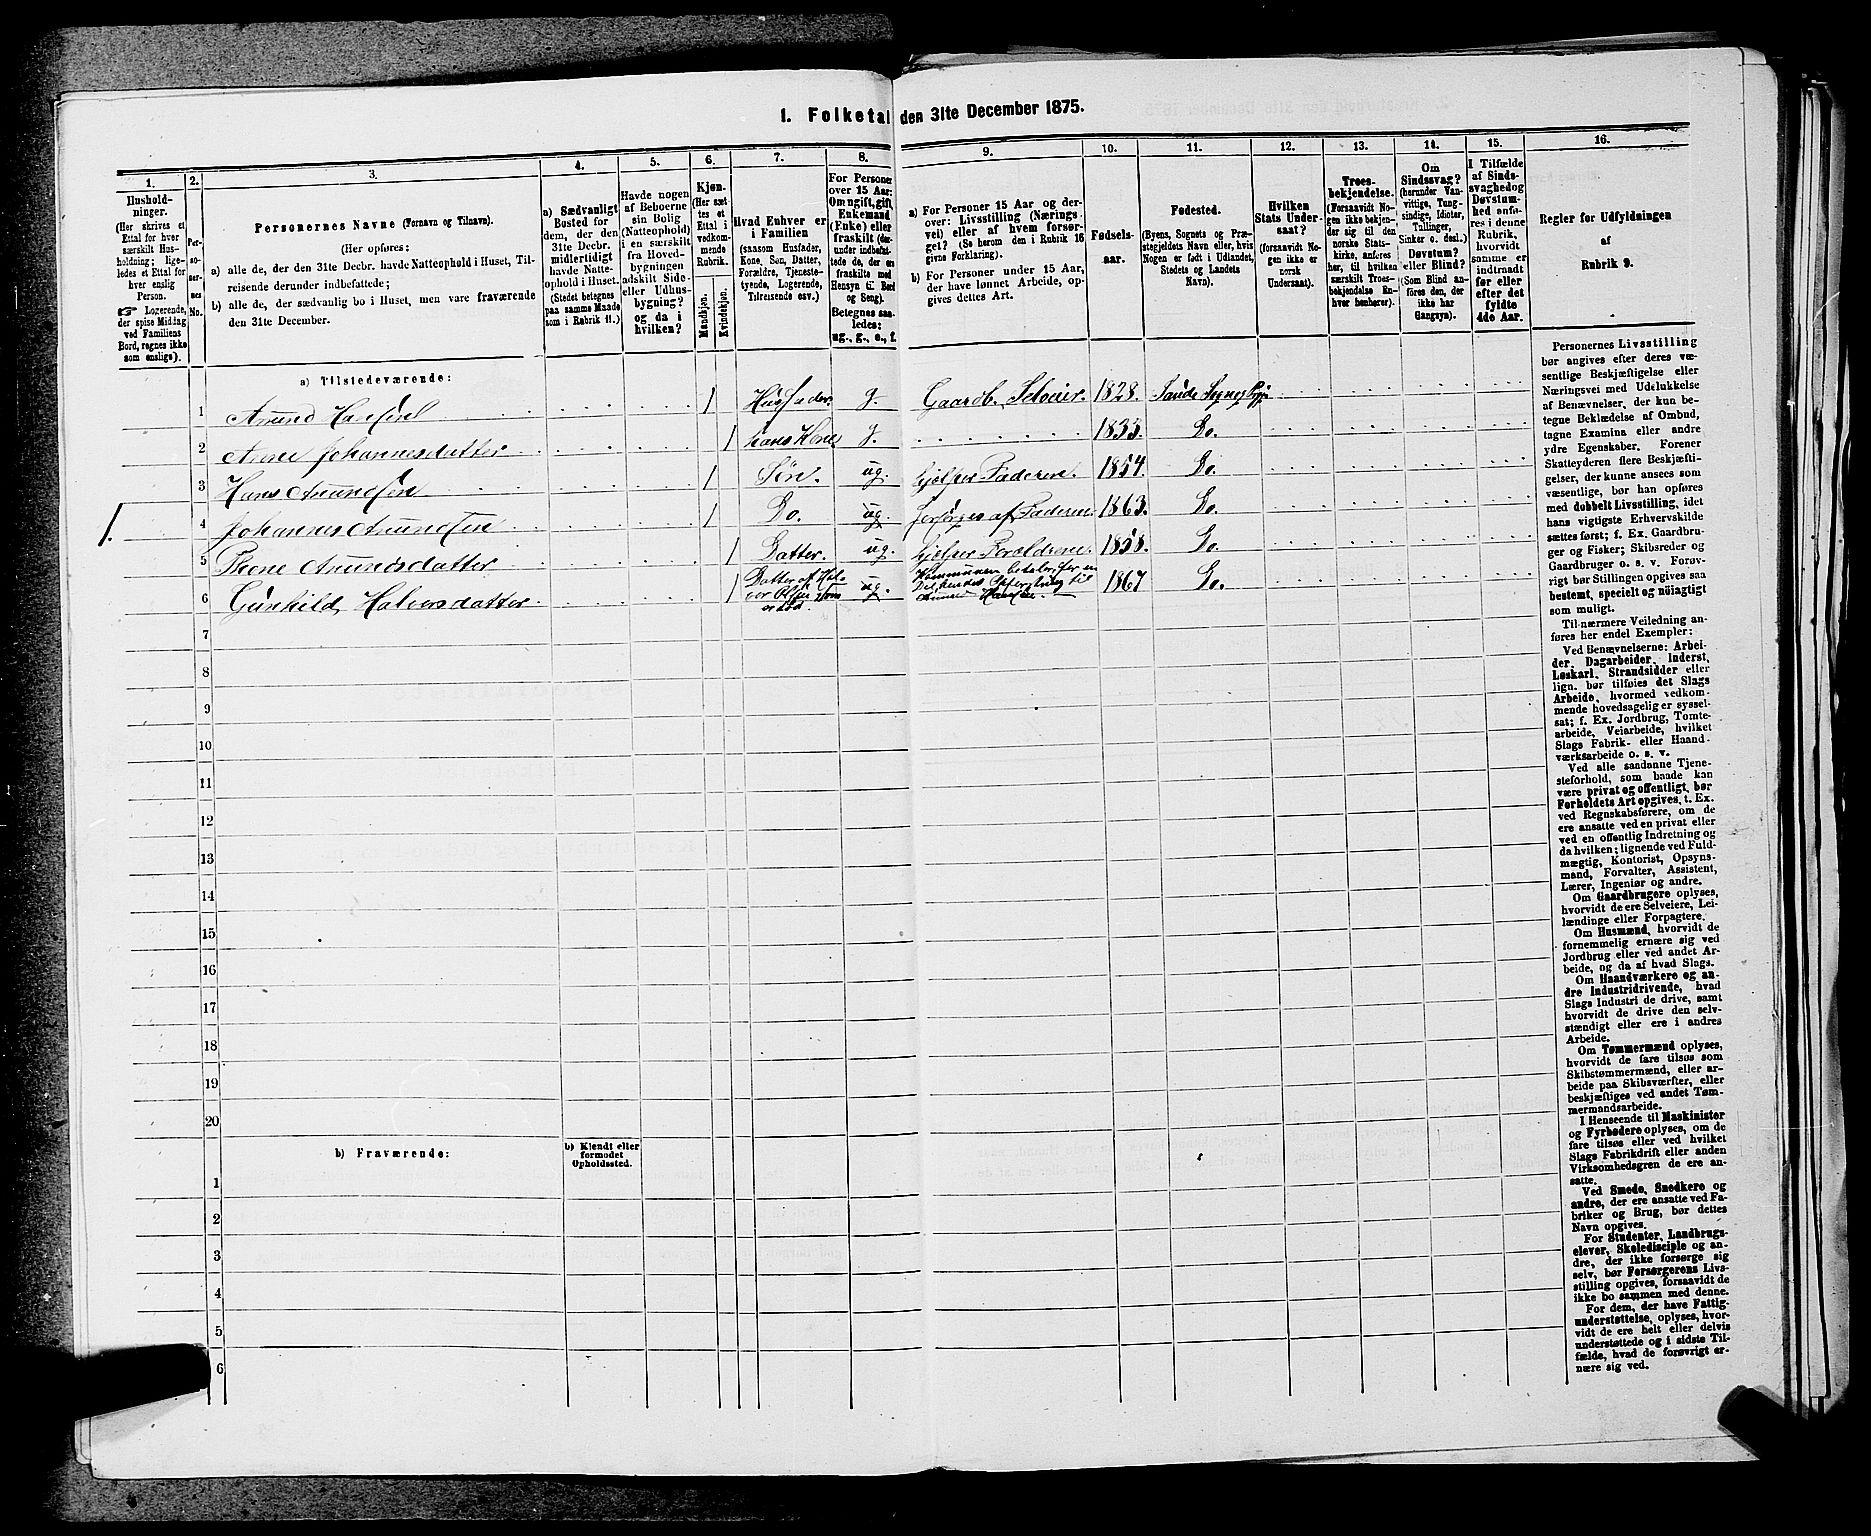 1. Folketal den 31te December 1875.
1. 2. 3. 4. 5. 6. 7. 8. 9. 10. 11. 12. 13. 14. 15. 16.
Hushold-
ninger.
(Her skrives et
Ettal for hver
særskilt Hus-
holdning; lige-
ledes et Ettal for
hver enslig
Person.
☞ Logerende,
der spise Middag
ved Familiens
Bord, regnes ikke
som enslige).
Per-
so-
ner-
nes
No.
Personernes Navne (Fornavn og Tilnavn).
(Her opføres:
a) alle de, der den 31te Decbr. havde Natteophold i Huset, Til-
reisende derunder indbefattede;
b) alle de, der sædvanlig bo i Huset, men vare fraværende
den 31te December.
a) Sædvanligt
Bosted for
dem, der den
31te Decbr.
midlertidigt
havde Natte-
ophold i Huset.
(Stedet betegnes
paa samme Maade
som i Rubrik 11.)
Havde nogen
af Beboerne
sin Bolig
(Natteophold)
i en særskilt
fra Hoved-
bygningen
adskilt Side-
eller Udhus-
bygning?
og da i
hvilken?
Kjøn.
(Her sæt-
tes et
Ettal i
vedkom-
mende
Rubrik.
Mandkjøn.
Kvindekjøn.
Hvad Enhver er
i Familien
(saasom Husfader,
Kone, Søn, Datter,
Forældre, Tjeneste-
tyende, Logerende,
Tilreisende osv.)
For Personer
over 15 Aar:
Om ugift, gift,
Enkemand
(Enke) eller
fraskilt (der-
under indbefat-
tede de, der ere
fraskilte med
Hensyn til Bord
og Seng).
Betegnes saa-
ledes:
ug., g., e., f.
a) For Personer 15 Aar og der-
over: Livsstilling (Nærings-
vei) eller af hvem forsør-
get? (Se herom den i Rubrik 16
givne Forklaring).
b) For Personer under 15 Aar,
der have lønnet Arbeide, op-
gives dettes Art.
Fødsels-
aar.
Fødested.
(Byens, Sognets og Præ-
stegjeldets Navn eller, hvis
Nogen er født i Udlandet,
Stedets og Landets
Navn).
Hvilken
Stats Under-
saat?
(forsaavidt No-
gen ikke er
norsk
Undersaat).
Troes-
bekjendelse.
(Forsaavidt No-
gen ikke bekjen-
der sig til den
norske Stats-
kirke, anføres
her, til hvilken
særskilt Troes-
bekjendelse En-
hver henhører).
Om
Sindssvag?
(herunder Van-
vittige, Tung-
sindige, Idioter,
Tullinger,
Sinker o. desl.)
Døvstum?
eller Blind?
(Som Blind an-
føres den, der
ikke har
Gangsyn).
I Tilfælde
af Sinds-
svaghed og
Døvstum-
hed anfø-
res i denne
Rubrik,
hvorvidt
samme er
indtraadt
før eller
efter det
fyldte
4de Aar.
Regler for Udfyldningen
af
Rubrik 9.
a) Tilstedeværende:
1 Amund Hansen 1 Husfader g. Gaardb. Selveier 1828. Sande Sogn
2 Anne Johannesdatter 1 hans Kone g. 1833. Do.
3 Hans Amundsen 1 Søn. ug. hjelper Faderen. 1854. Do.
1. 4 Johannes Amundsen 1 Do. ug. forsørges af Faderen 1863. Do.
5 Thone Amundsdatter 1 Datter. ug. hjelper Forældrene. 1858. Do.
6 Gunhild Halvorsdatter 1 Datter af Hal-
vor Olsen ug. Kommunen betaler for
til
Amund Hansen. 1867 Do.
7
8
9
10
11
12
13
14
15
16
17
18
19
20
b) Fraværende:
b) Kjendt eller
formodet
Opholdssted.
1
2
3
4
5
6
Personernes Livsstilling
bør angives efter deres væ-
sentlige Beskjæftigelse eller
Næringsvei med Udelukkelse
af Benævnelser, der kun be-
tegne Beklædelse af Ombud,
tagne Examina eller andre
ydre Egenskaber. Forener
Skatteyderen flere Beskjæfti-
gelser, der kunne ansees som
væsentlige, bør han opføres
med dobbelt Livsstilling, idet
hans vigtigste Erhvervskilde
sættes først; f. Ex. Gaardbru-
ger og Fisker; Skibsreder og
Gaardbruger o. s. v. Forøv-
rigt bør Stillingen opgives saa
bestemt, specielt og nøiagtigt
som muligt.
Til nærmere Veiledning an-
føres her endel Exempler:
Ved Benævnelserne: Arbei-
der, Dagarbeider, Inderst,
Løskarl, Strandsidder eller
lign. bør tilføies det Slags
Arbeide, hvormed vedkom-
mende hovedsagelig er syssel-
sat; f. Ex. Jordbrug, Tomte-
arbeide, Veiarbeide, hvilket
Slags Fabrik- eller Haand-
værksarbeide o. s. v.
Ved alle saadanne Tjene-
steforhold, som baade kan
være privat og offentligt, bør
Forholdets Art opgives, t. Ex.
ved Regnskabsførere, om de
ere ansatte ved en privat eller
ved en offentlig Indretning og
da hvilken; lignende ved Fuld-
mægtig, Kontorist, Opsyns-
mand, Forvalter, Assistent,
Lærer, Ingeniør og andre.
Om Gaardbrugere oplyses,
hvorvidt de ere Selveiere, Lei-
lændinge eller Forpagtere.
Om Husmænd, hvorvidt de
fornemmelig ernære sig ved
Jordbrug eller ved andet Ar-
beide, og da af hvad Slags.
Om Haandværkere og an-
dre Industridrivende, hvad
Slags Industri de drive, samt
hvorvidt de drive den selv-
stændigt eller ere i andres
Arbeide.
Om Tømmermænd oplyses,
hvorvidt de fare tilsøs som
Skibstømmermænd, eller ar-
beide paa Skibsværfter, eller
beskjæftiges ved andet Tøm-
mermandsarbeide.
I Henseende til Maskinister
og Fyrbødere oplyses, om de
fare tilsøs eller ved hvilket
Slags Fabrikdrift eller anden
Virksomhedsgren de ere an-
satte.
Ved Smede, Snedkere og
andre, der ere ansatte ved Fa-
briker og Brug, bør dettes
Navn opgives.
For Studenter, Landbrugs-
elever, Skoledisciple og an-
dre, der ikke forsørge sig
selv, bør Forsørgerens Livs-
stilling opgives, forsaavidt de
ikke bo sammen med denne.
For dem, der have Fattig-
understøttelse, oplyses, hvor-
vidt de ere helt eller delvis
understøttede og i sidste Til-
fælde, hvad de forøvrigt er-
nære sig ved.